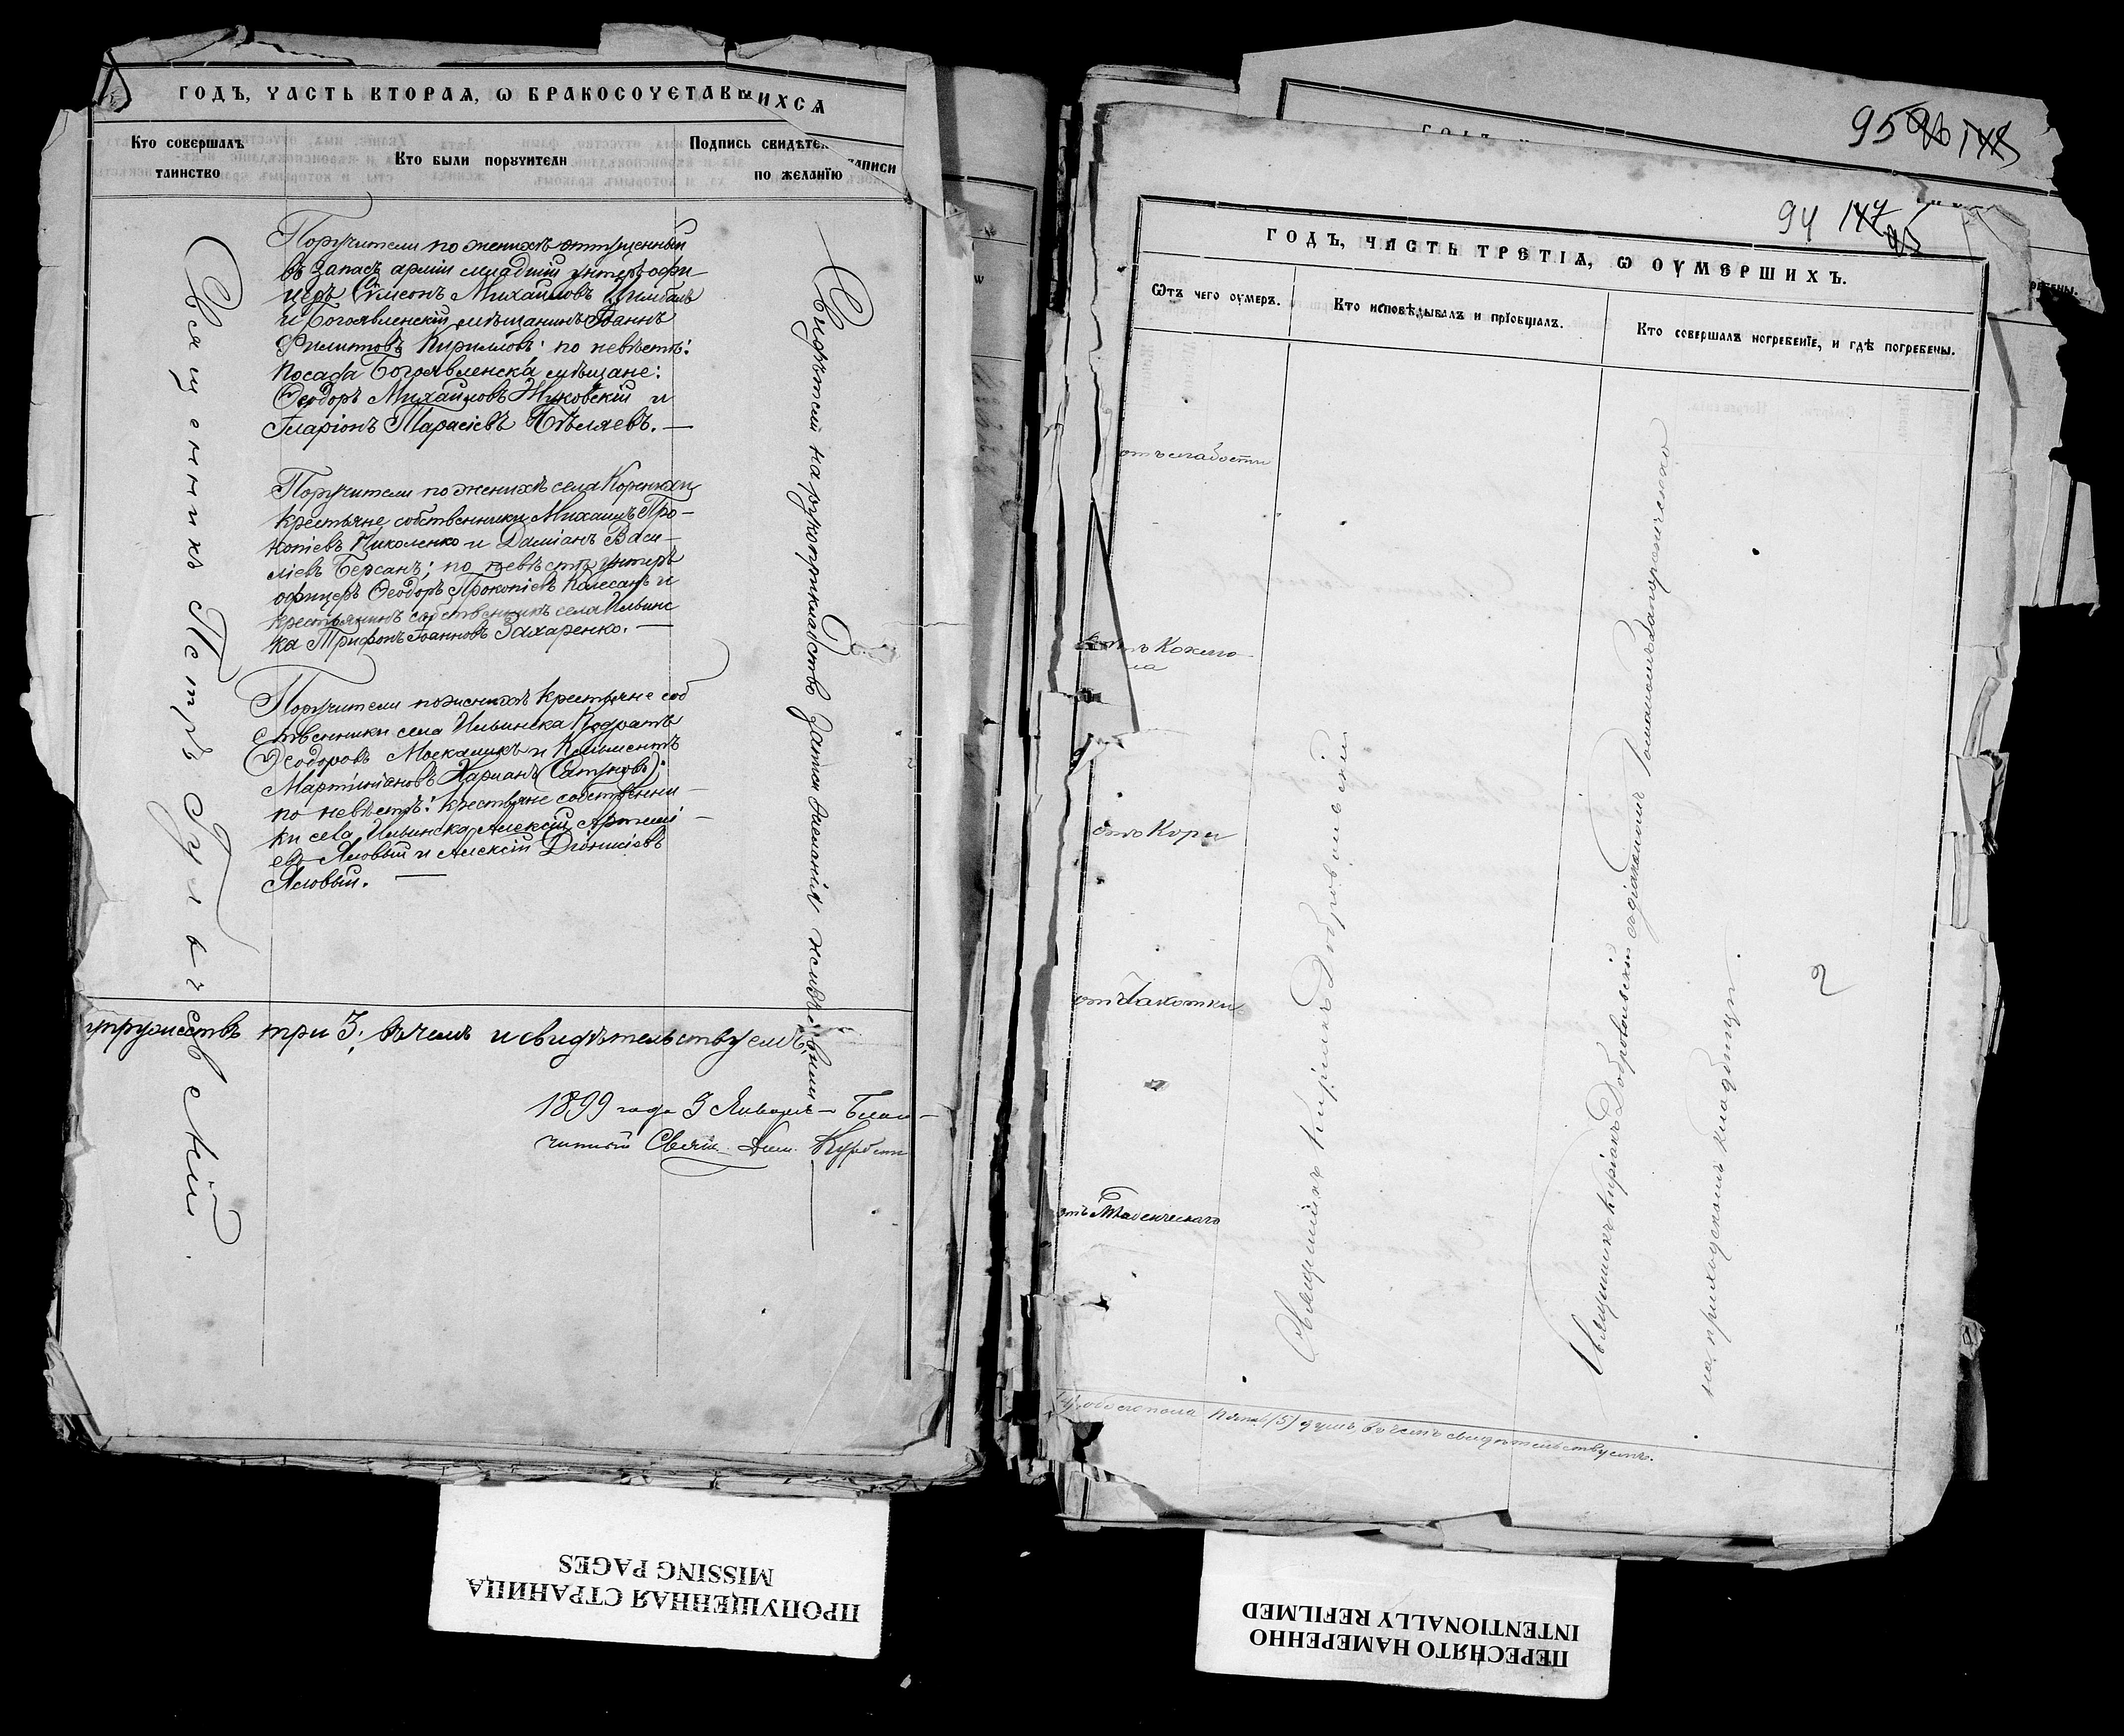 ГОДЪ, ЧАСТЬ ВТОРАѦ, Ѡ БРАКОСОЧЕТАВШИХСѦ
Кто совершалъ таинство
Кто были поручители
Подпись свидѣтел записи по желанїю
Священникъ Петръ Гулбачевскій.
Поручители по женихѣ отпущенный
въ запасъ арміи младшій унтеръ офи-
церъ Сѵмеонъ Михайловъ Цимбалъ
и Богоявленскій мѣщанинъ Іоаннъ
Филиповъ Кирилловъ: по невѣстѣ:
посада Богоявленска мѣщане:
Ѳеодоръ Михайловъ Жуковскій и
Иларіонъ Тарасіевъ Бѣляевъ. —
Поручители по женихѣ села Коренихи
крестьяне собственники Михаилъ Про-
копіевъ Николенко и Даміанъ Васи-
ліевъ Берсанъ; по невѣстѣ унтеръ
офицеръ Ѳеодоръ Прокопіевъ Колесанъ и
крестьянинъ собственникъ села Ильинс
ка Трифонъ Іоанновъ Захаренко. —
Поручители по женихѣ крестьяне соб
ственники села Ильинска Кодратъ
Ѳеодоровъ Москаликъ и Климентъ
Мартиніановъ Хариан (Сатуновъ);
по невѣстѣ: крестьяне собственни-
ки села Ильинска Алексій Артемі-
евъ Яловый и Алексій Діонисіевъ
Яловый. —
Свидѣтели на рукоприкладство записи желанія не изъявили
супружествъ три 3; въ чемъ и свидѣтельствуемъ.
1899 года 3 Января Благо-
чинный Свящ. Дим. Курбет
95 96 148
94 147 95
ГОДЪ, ЧАСТЬ ТРЕТІѦ, Ѡ ОУМЕРШИХЪ.
Ѿтъ чего оумеръ.
Кто исповѣдывалъ и прїобщалъ.
Кто совершалъ погребенїе, и гдѣ погребены.
отъ слабости
отъ Коклю
ша
отъ Кори
отъ Чахотки
отъ Младенческаго
Священникъ Киріакъ Добровольскій
Священникъ Киріакъ Добровольскій съ діакономъ
на приходскомъ кладбищѣ.
2
обоего пола пять (5) душъ, въ чемъ свидѣтельствуемъ.
ПРОПУЩЕННАЯ СТРАНИЦА
MISSING PAGES
ПЕРЕСНЯТО НАМЕРЕННО
INTENTIONALLY REFILMED